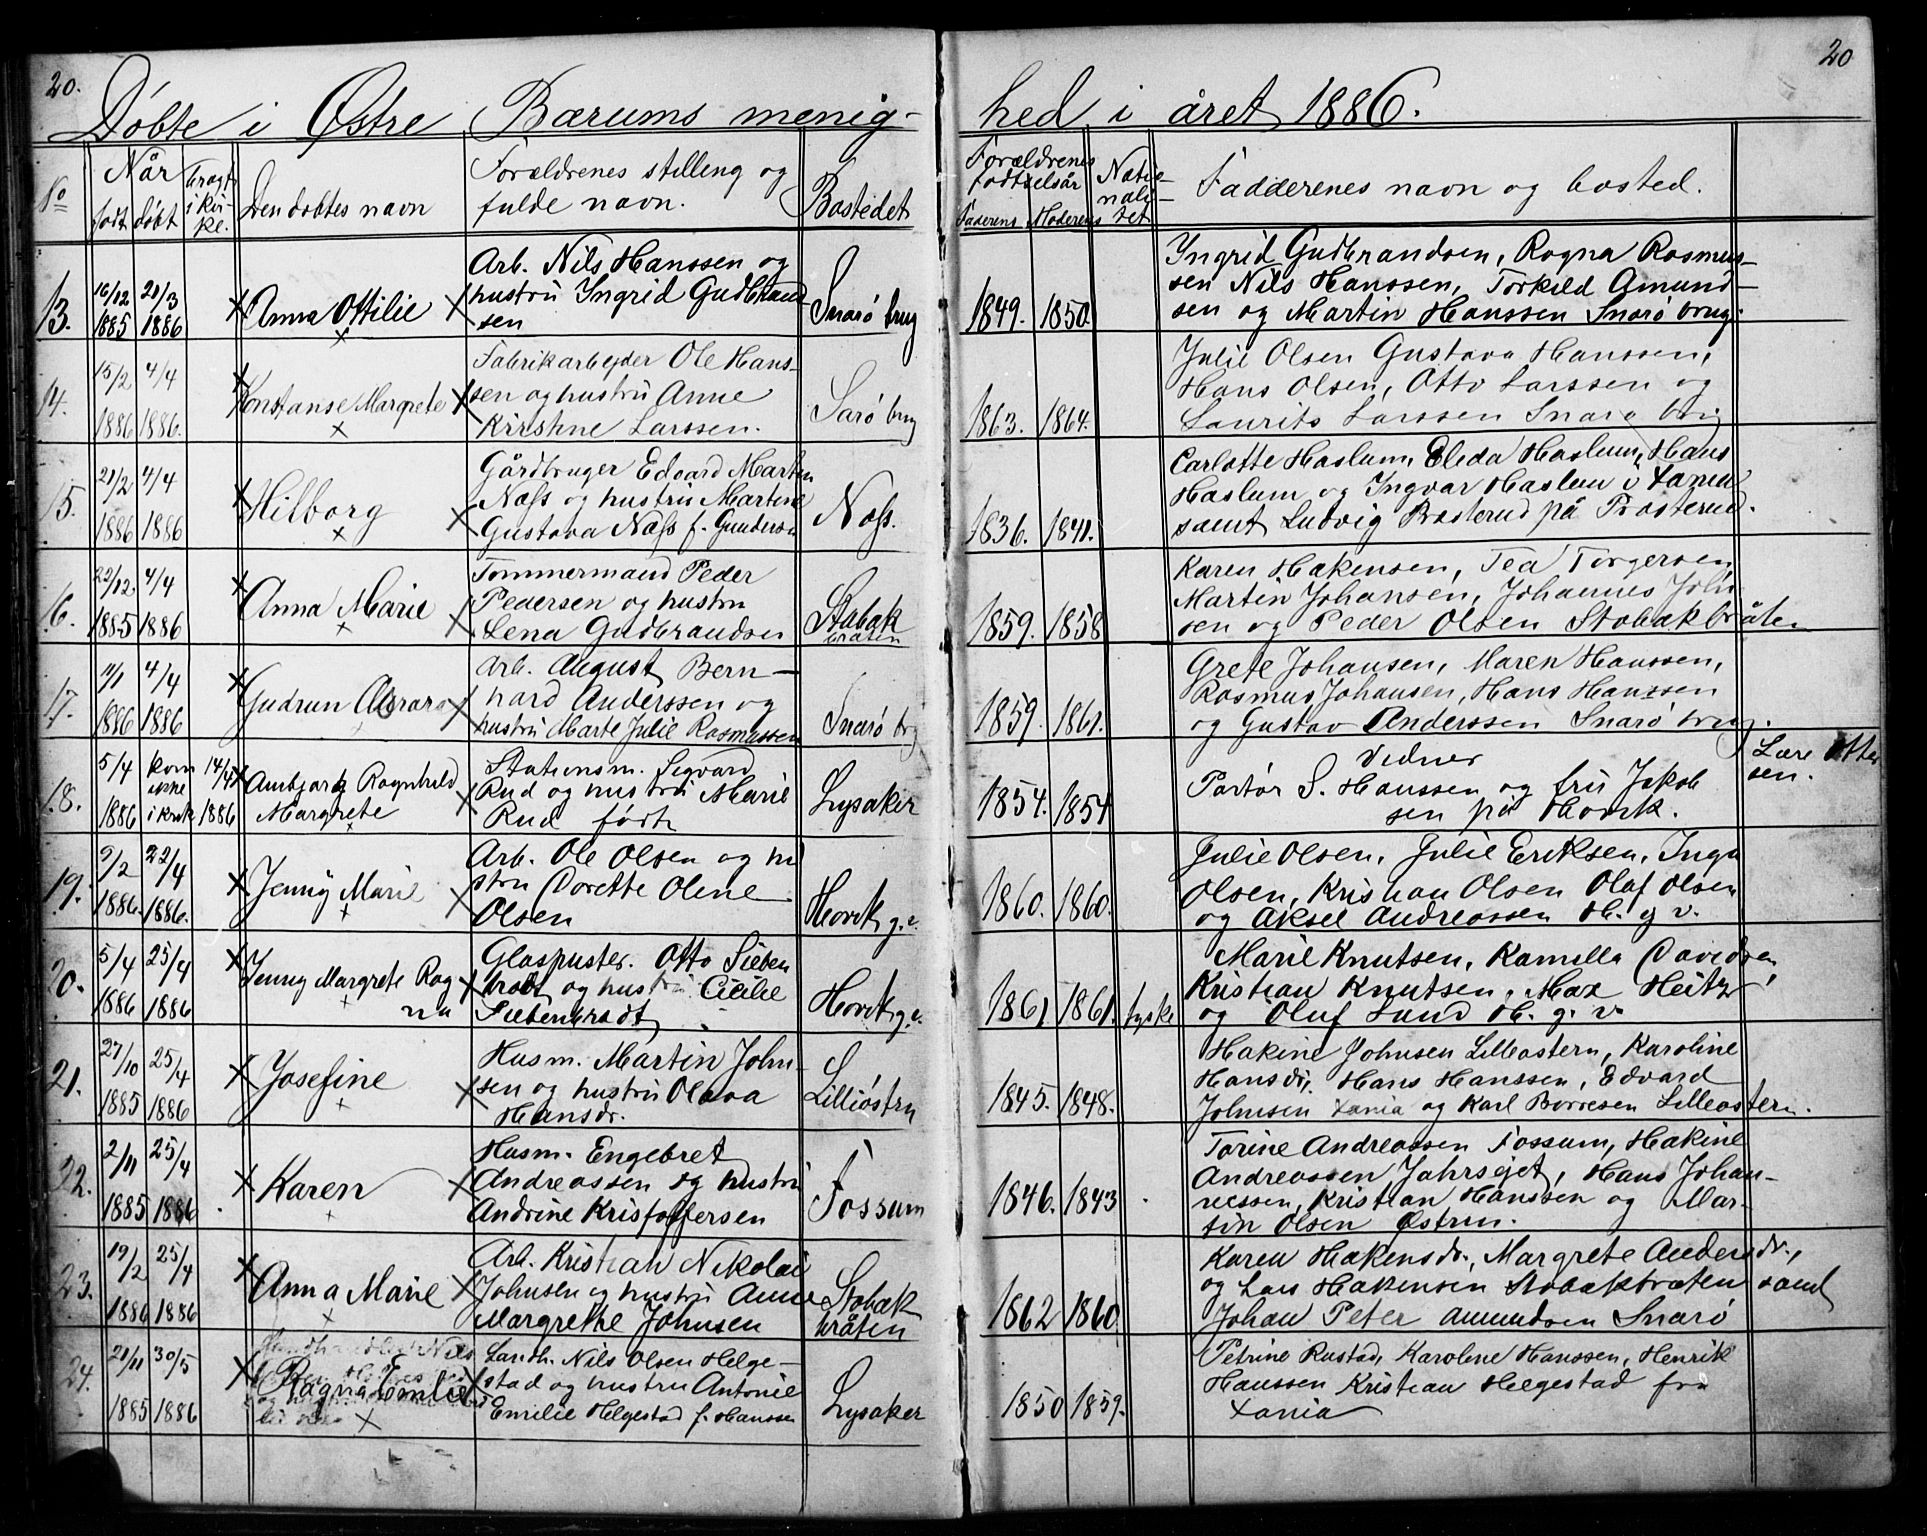 20.
20
Döbte i Østre Bærums menig-
hed i året 1886.
No
Når
födt
döbt
bragt i kir-
ke.
Den döbtes navn
Forældrenes stilling og
fulde navn.
Bostedet
Forældrenes
fødselsår
Faderens Moderens
Natio-
nali-
tet
Fadderenes navn og bosted.
13.
16/12
1885
21/3
1886
Anna Ottilie
Arb. Nils Hanssen og
hustru Ingrid Gudbrand
sen
Snarö brug
1849. 1850
Ingrid Gudbrandsen, Ragna Rasmus-
sen Nils Hanssen, Torkild Amund-
sen og Martin Hanssen Snarö brug.
14.
15/2
1886
4/4
1886.
Konstanse Margrete
Fabrikarbejder Ole Hans-
sen og hustru Anne
Kirstine Larssen.
Sarö brug
1863. 1864.
Julie Olsen Gustava Hanssen,
Hans Olsen, Otto Larssen og
Laurits Larssen Snarø brug
15.
21/2
1886
4/4
1886
Hilborg
Gårdbruger Edvard Martin
Næss og hustru Martine
Gustava Næss f. Gundersen
Næss.
1836. 1841.
Carlotte Haslum, Elida Haslum, Hans
Haslum og Ingvar Haslum i Xania
samt Ludvig Prosterud på Prosterud.
16.
22/12
1885
4/4
1886
Anna Marie
Tømmermand Peder
Pedersen og hustru
Lena Gudbrandsen
Stabæk
bråten
1859. 1858
Karen Hakensen, Tea Torgersen
Martin Johansen, Johannes John
sen og Peder Olsen Stabækbråten
17.
11/1
1886
4/4
1886
Gudrun
Arb. August Bern-
hard Anderssen og
hustru Marte Julie Rasmussen
Snarö brg
1859. 1861.
Grete Johansen, Maren Hanssen,
Rasmus Johansen, Hans Hanssen
og Gustav Anderssen Snarö brug.
18.
5/4
1886
kom
ikke
i kirk
14/4
1886
Ambjørg Ragnhild
Margrete
Stationsm. Sigvard
Rud og hustru Marie
Rud født
Lysaker
1854. 1854
Vidner
Pastor S. Hanssen og fru Jakob
sen på Hovik.
Lære Otte
sen.
19.
9/2
1886.
22/4
1886.
Jenny Marie
Arb. Ole Olsen og hu
stru Dorette Oline
Olsen
Hovik g.v.
1860. 1860.
Julie Olsen, Julie Eriksen, Inga
Olsen, Kristian Olsen Olaf Olsen
og Aksel Andreassen H. g v.
20.
5/4
1886
25/4
1886
Jenny Margrete Rag
na
Glaspuster. Otto Sieben
bradt og hustru Cicilie
Siebenbradt
Hovik g.v.
1861 1861. tyske
Marie Knutsen, Kamilla Davidsen,
Kristian Knutsen, Max Heitz
og Oluf Lund H. g. v.
21.
27/10
1885
25/4
1886
Josefine
Husm. Martin John-
sen og hustru Olava
Hansdr.
Lilliöstrn
1845. 1848.
Hakine Johnsen Lilleøstern, Karoline
Hansdr. Hans Hanssen, Edvard
Johnsen Xania og Karl Borresen Lilleøstern.
22.
2/11
1885
25/4
1886
Karen
Husm. Engebret
Andreassen og hustru
Andrine Kristoffersen
Fossum
1846. 1843
Torine Andreassen Fossum, Hakine
Andreassen Jahrsejet, Hans Johan-
nessen, Kristian Hanssen og Mar-
tin Olsen Østrn.
23.
19/2
1886
25/4
1886
Anna Marie
Arb. Kristian Nikolai
Johnsen og hustru Anne
Margrethe Johnsen
Stabæk
bråten
1862 1860
Karen Hakensdr., Margrete Andersdr.,
og Lars Hakensen Stabækbråten samt
Johan Peter Amundsen Snarö
24.
21/11
1885
30/5
1886
Ragna Emilie
Landh. Nils Olsen Helge-
stad og hustru Antonie
Emilie Helgestad f. Hanssen
Lysaker
1850 1859.
Petrine Rustad, Karoline Hanssen, Henrik
Hanssen Kristian Helgestad fra
Xania